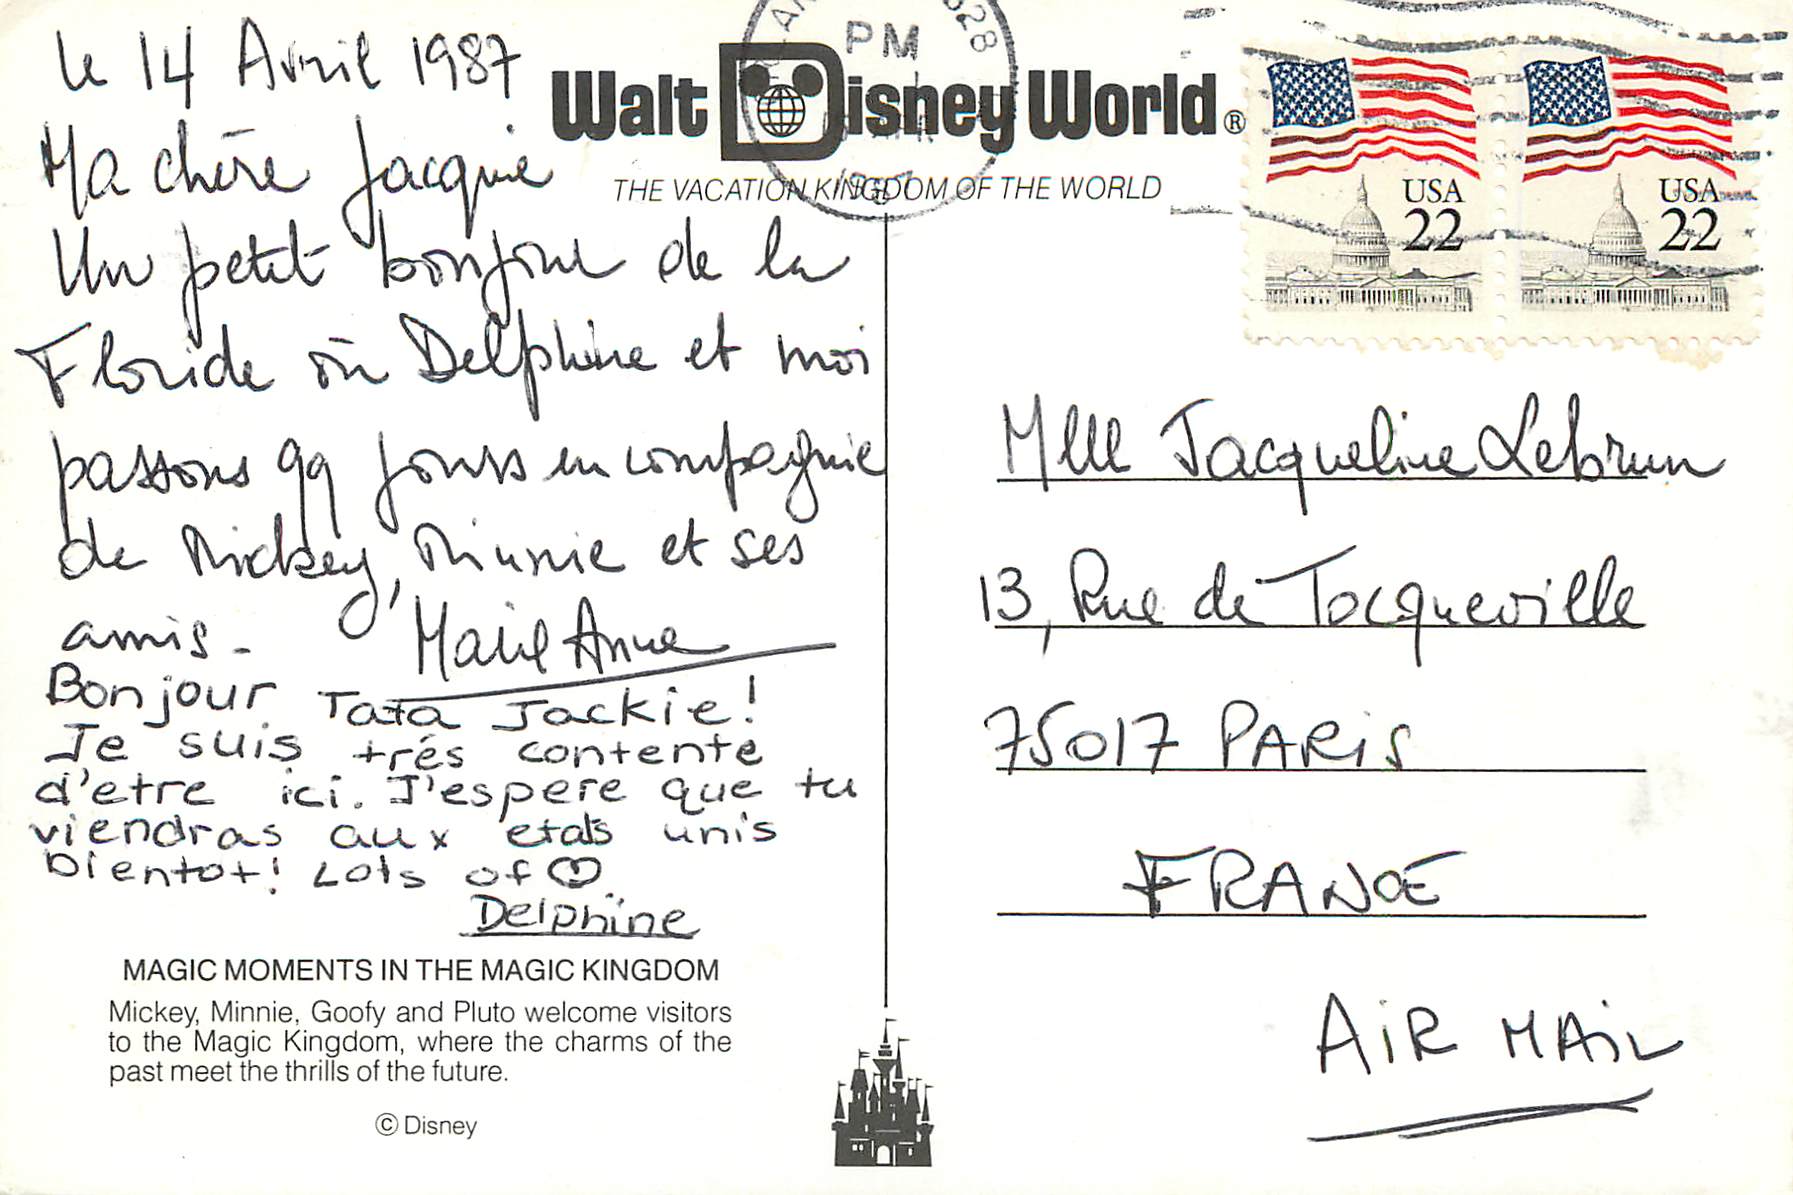 le 14 Avril 1987
Ma chère Jacquie
Un petit bonjour de la
Floride où Delphine et moi
passons qq jours en compagnie
de Mickey, Minnie et ses
amis.
Marie Anne
Bonjour Tata Jackie!
Je suis trés contente
d'etre ici. J'espere que tu
viendras aux etats unis
bientot! Lots of ♡
Delphine
MAGIC MOMENTS IN THE MAGIC KINGDOM
Mickey, Minnie, Goofy and Pluto welcome visitors
to the Magic Kingdom, where the charms of the
past meet the thrills of the future.
© Disney
Walt Disney World®
THE VACATION KINGDOM OF THE WORLD
PM
USA
22
USA
22
Mlle Jacqueline Lebrun
13, Rue de Tocqueville
75017 PARIS
FRANCE
AIR MAIL